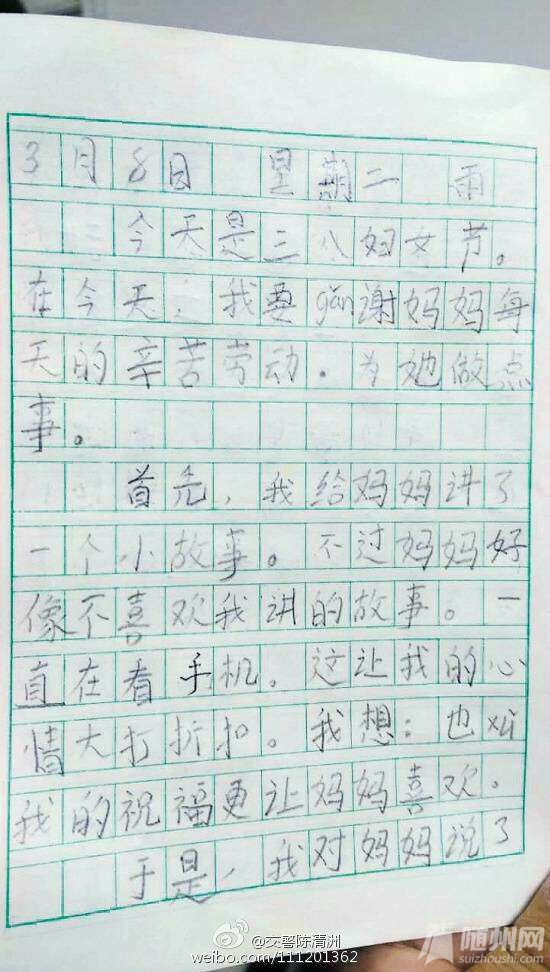 3月8日 星期二 雨
今天是三八妇女节。
在今天,我要gǎn谢妈妈每
天的辛苦劳动.为她做点
事。
首先,我给妈妈讲了
一个小故事。不过妈妈好
像不喜欢我讲的故事。一
直在看手机。这让我的心
情大打折扣。我想:也xǔ
我的祝福更让妈妈喜欢。
于是,我对妈妈说了
@交警陈清洲
weibo.com/111201362
随州网
suizhoushi.com